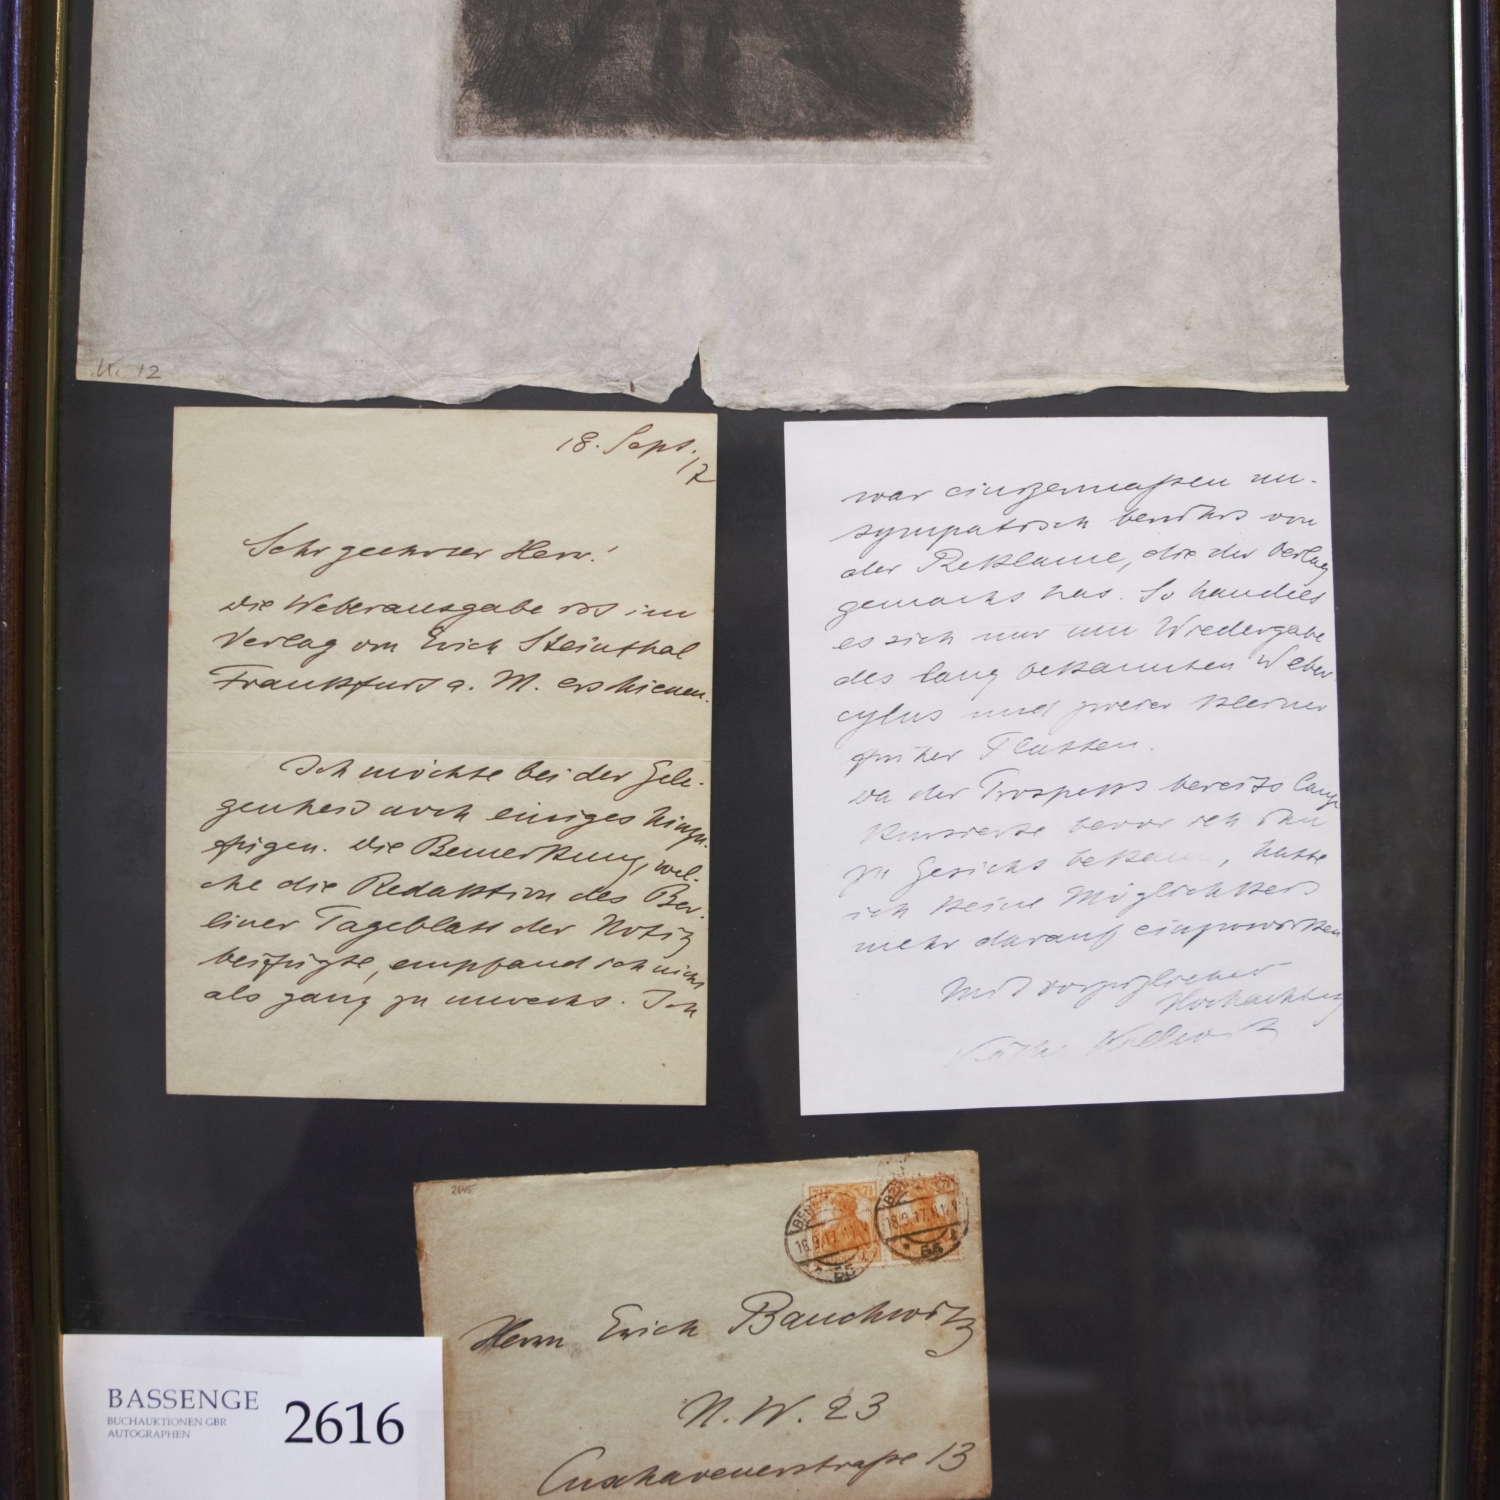 K. 12
18. Sept.
17
Sehr geehrter Herr!
Die Weberausgabe ist im
Verlag von Erich Steinthal
Frankfurt a. M. erschienen.
Ich möchte bei der Gele-
genheit auch einiges hinzu-
fügen. Die Bemerkung, wel-
che die Redaktion des Ber-
liner Tageblatt der Notiz
beifügte, empfand ich nicht
als ganz zu unrecht. Ich
war einigermaßen un-
sympatisch berührt von
der Reklame, die der Verlag
gemacht hat. So handelt
es sich nur um Wiedergabe
des lang bekannten Weber-
cyclus und zweier kleiner
früher Platten.
Da der Prospekt bereits lange
kursierte bevor ich ihn
zu Gesicht bekam, hatte
ich keine Möglichkeit
mehr darauf einzuwirken
Mit vorzüglicher
Hochachtung
Käthe Kollwitz
2645
18.9.17.11-12V
55
18.9.17.11-12V
55
Herrn Erich Bauchwitz
N. W. 23
Cuxhavenerstraße 13
BASSENGE
BUCHAUKTIONEN GBR
AUTOGRAPHEN
2616